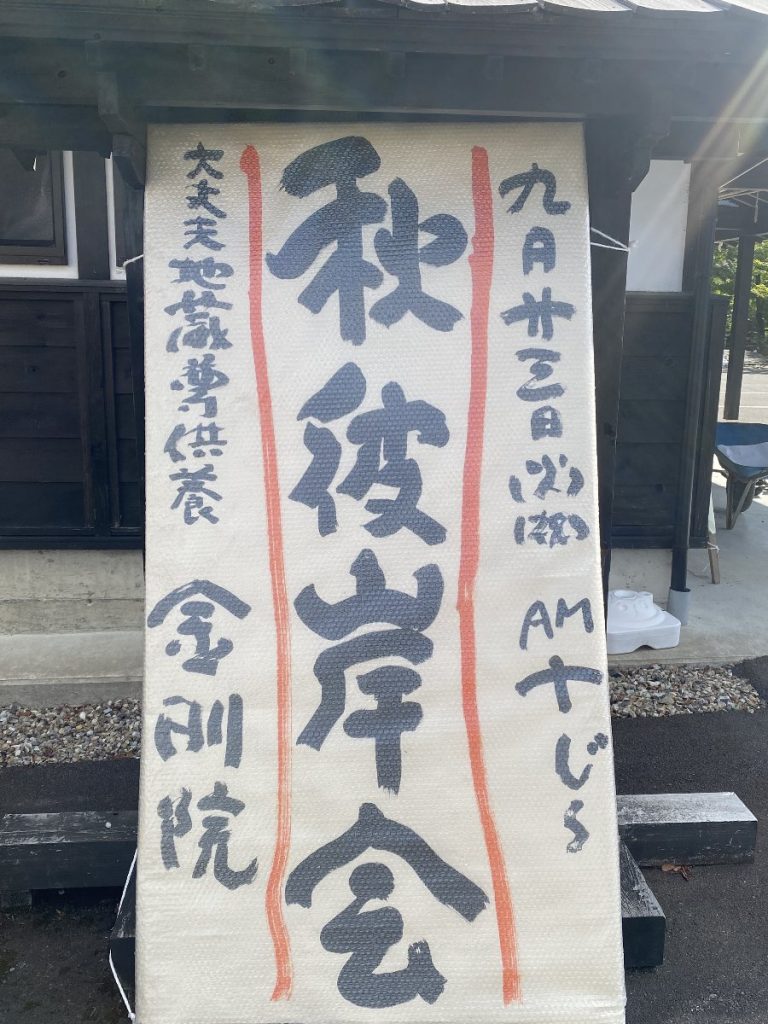 九月廿三日(火)(祝) AM十じら
秋彼岸会
大丈夫地蔵尊供養 金刚院